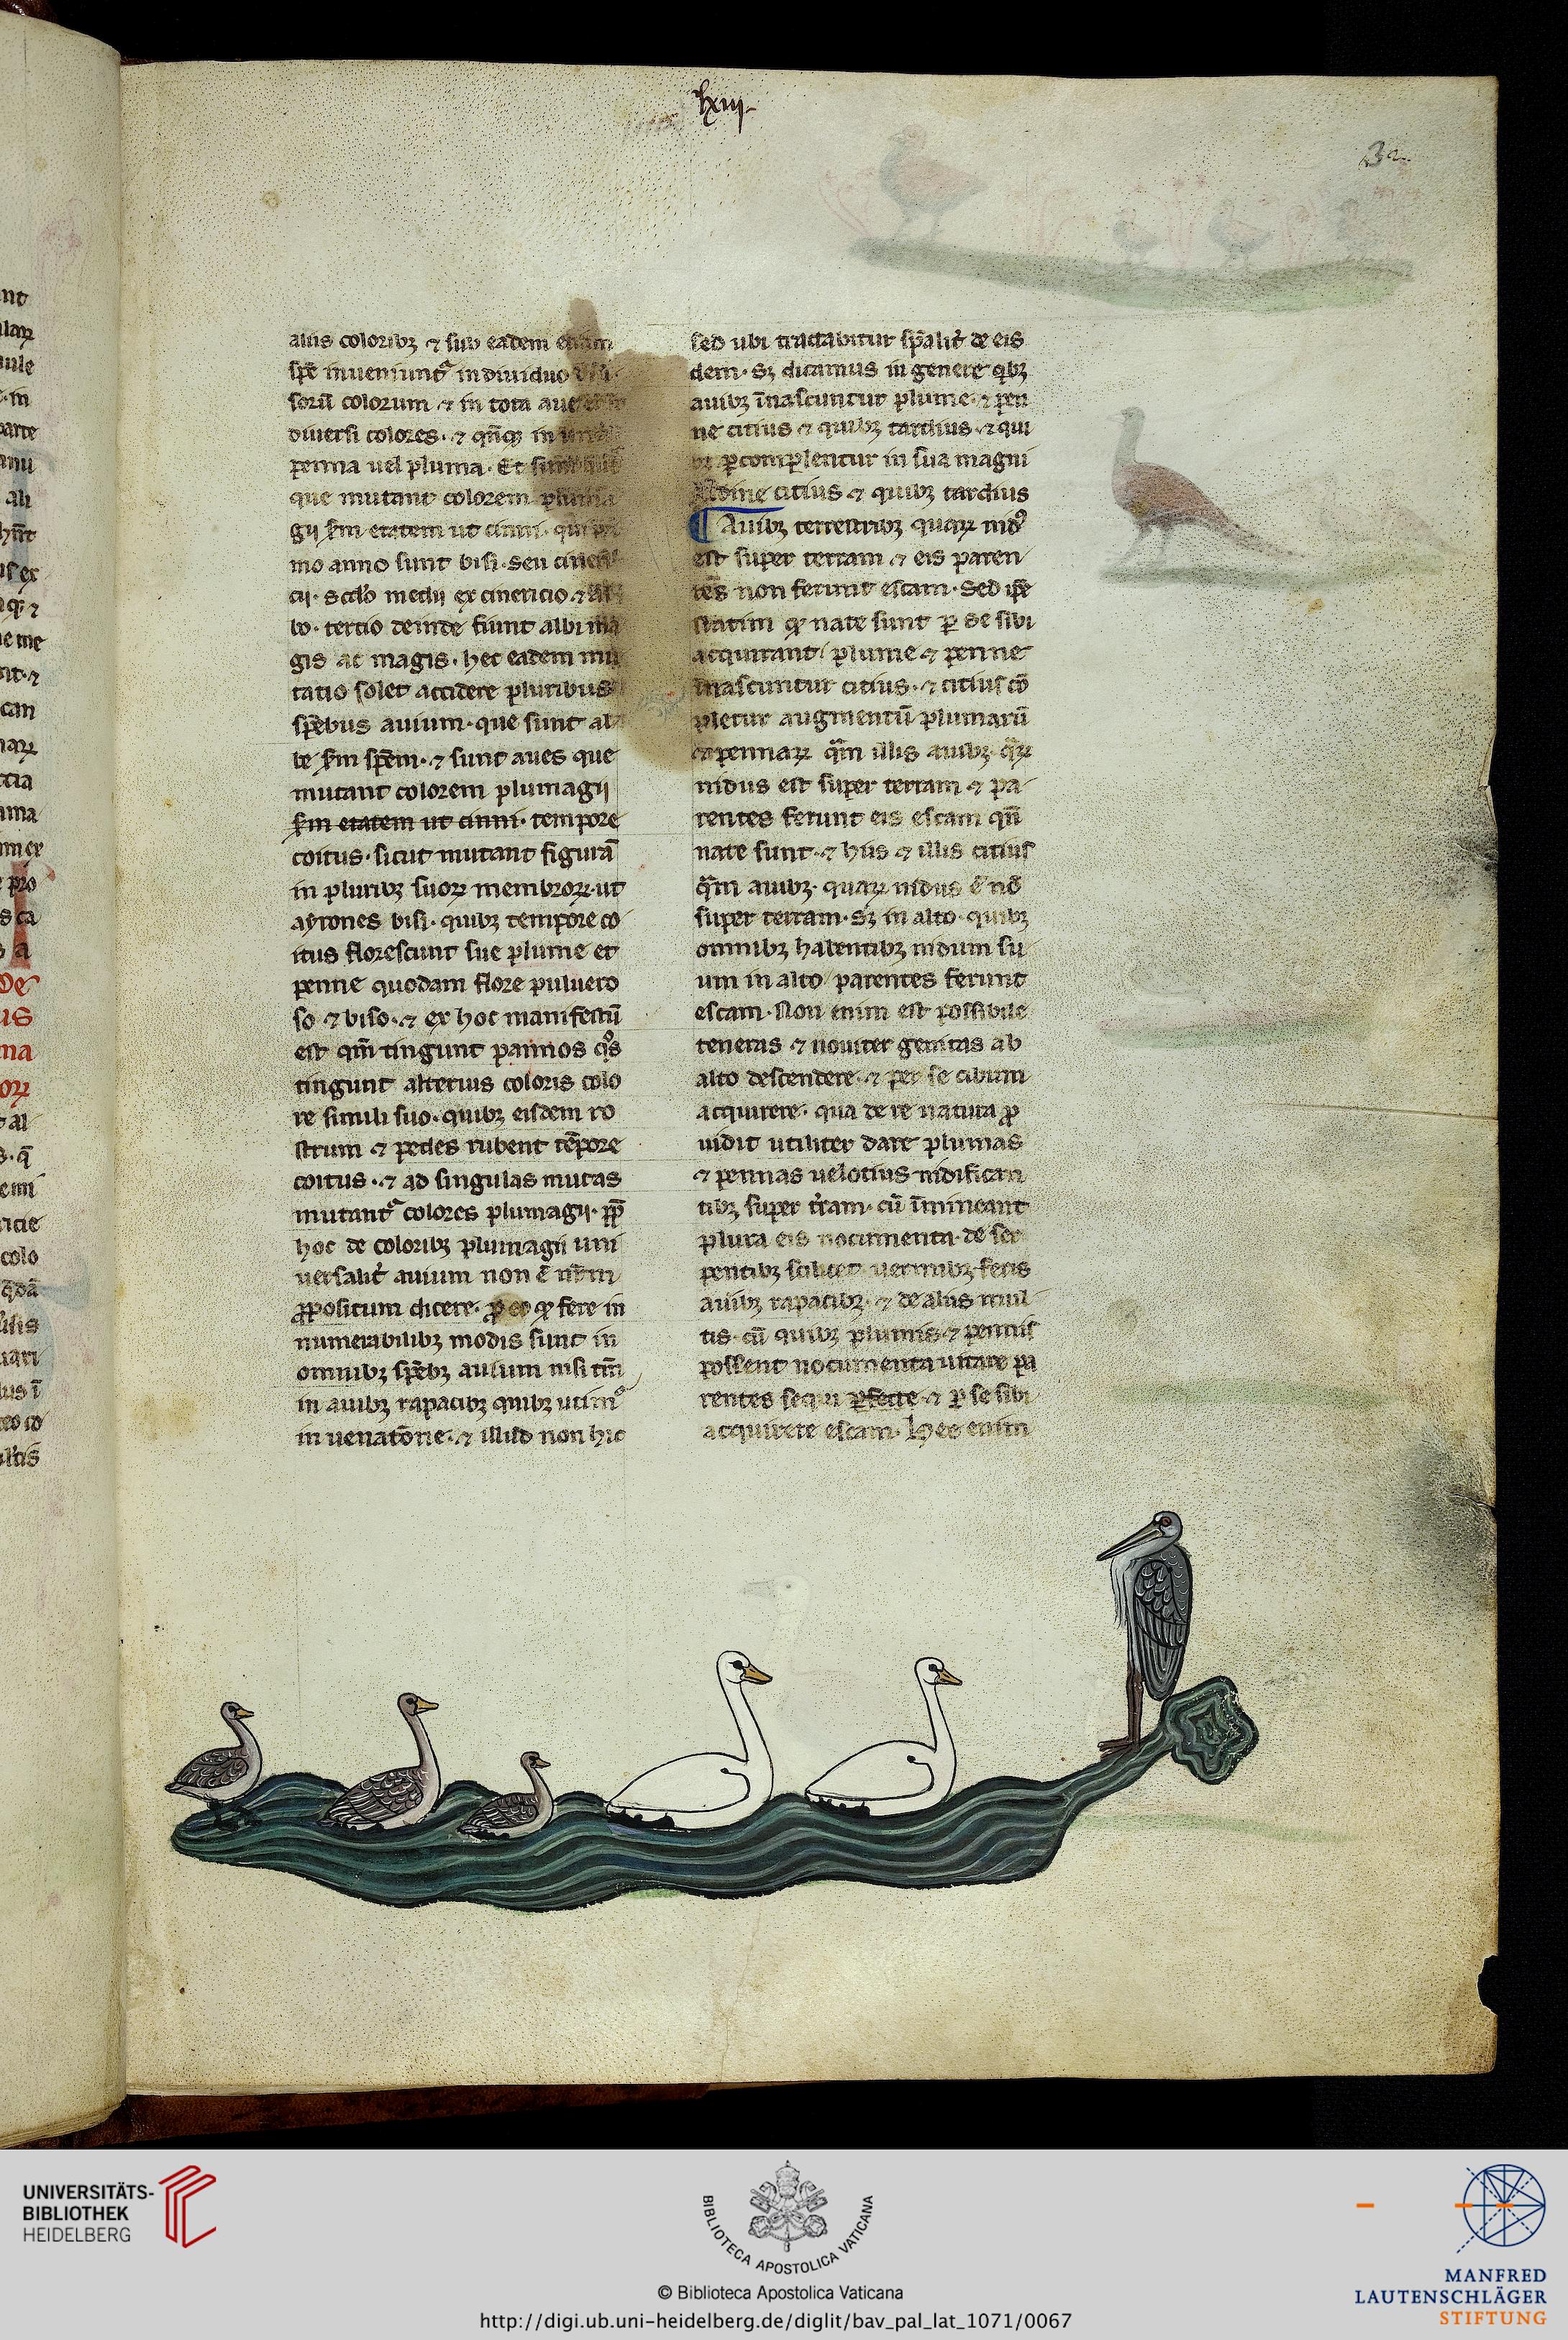 lxiii.
32
aliis coloribꝫ ⁊ sub eadem etiam
sp̄e inueniunt᷑ indiuiduo
sorū colorum ⁊ in tota aue
diuersi colores. ⁊ qn̄qꝫ in
penna uel pluma. Et sunt
que mutant colorem pluma
gij s̄m etatem ut cinni. qui pri
mo anno sunt bisi. seu cineri
cij. scd̄o medij ex cinericio ⁊ al
bo. tertio deinde fiunt albi ma
gis ac magis. hec eadem mu
tatio solet accidere pluribus
sp̄ebus auium. que sunt al
be s̄m sp̄em. ⁊ sunt aues que
mutant colorem plumagij
s̄m etatem ut cinni. tempore
coitus. sicut mutant figurā
in pluribꝫ suoꝝ membroꝝ. ut
ayrones bisi. quibꝫ tempore co
itus florescunt sue plume et
penne quodam flore puluero
so ⁊ biso. ⁊ ex hoc manifestū
est qm̄ tingunt pannos qͦs
tingunt alterius coloris colo
re simili suo. quibꝫ eisdem ro
strum ⁊ pedes rubent tēpore
coitus. ⁊ ad singulas mutas
mutant᷑ colores plumagij. ꝓp̄
hoc de coloribꝫ plumagij uni
uersalit̉ auium non ē nr̄m
ꝓpositum dicere. ꝓ eo ꝙ fere in
numerabilibꝫ modis sunt in
omnibꝫ sp̄ebꝫ auium nisi tm̄
in auibꝫ rapacibꝫ quibꝫ utimͦ
in uenatōne. ⁊ illud non hic
sed ubi tractabitur sp̄alit̉ de eis
dem. Sꝫ dicamus in genere qͥbꝫ
auibꝫ īnascuntur plume. ⁊ pen
ne citius ⁊ quibꝫ tardius. ⁊ qui
bꝫ ꝑcomplentur in sua magni
tudine citius ⁊ quibꝫ tardius
¶ Auibꝫ terrestribꝫ quaꝝ nidꝰ
est super terram ⁊ eis paren
tes non ferunt escam. Sed ip̄e
statim ꝙ nate sunt ꝑ se sibi
acquirant/ plume ⁊ penne
īnascuntur citius. ⁊ citius cō
pletur augmentū plumarū
⁊ pennaꝝ qᷓm illis auibꝫ. qͣꝝ
nidus est super terram ⁊ pa
rentes ferunt eis escam qn̄
nate sunt. ⁊ hiis ⁊ illis citius
qᷓm auibꝫ. quaꝝ nidus ē nō
super terram. Sꝫ in alto. quibꝫ
omnibꝫ habentibꝫ nidum su
um in alto/ parentes ferunt
escam. Non enim est possibile
teneras ⁊ nouiter genitas ab
alto descendere. ⁊ per se cibum
acquirere. qua de re natura ꝓ
uidit utiliter dare plumas
⁊ pennas uelocius nidifican
tibꝫ super t̉ram. cū īmineant
plura eis nocumenta. de ser
pentibꝫ scilicet uermibꝫ feris
auibꝫ rapacibꝫ. ⁊ de aliis mul
tis. cū quibꝫ plumis ⁊ pennis
possent nocumenta uitare pa
rentes sequi ꝑfecte. ⁊ ꝑ se sibi
acquirere escam. Hec enim
UNIVERSITÄTS-
BIBLIOTHEK
HEIDELBERG
BIBLIOTECA APOSTOLICA VATICANA
© Biblioteca Apostolica Vaticana
http://digi.ub.uni-heidelberg.de/diglit/bav_pal_lat_1071/0067
MANFRED
LAUTENSCHLÄGER
STIFTUNG